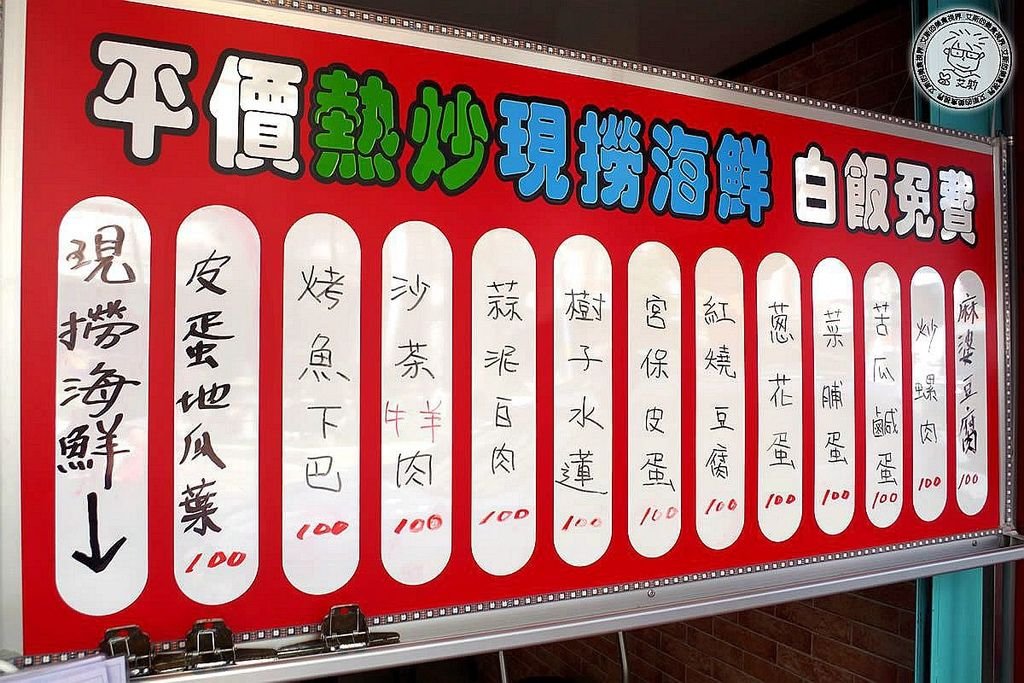 平價熱炒現撈海鮮 白飯免費
現撈海鮮↓
皮蛋地瓜葉 100
烤魚下巴 100
沙茶牛羊肉 100
蒜泥白肉 100
樹子水蓮 100
宮保皮蛋 100
紅燒豆腐 100
蔥花蛋 100
菜脯蛋 100
苦瓜鹹蛋 100
炒螺肉 100
麻婆豆腐 100
艾斯